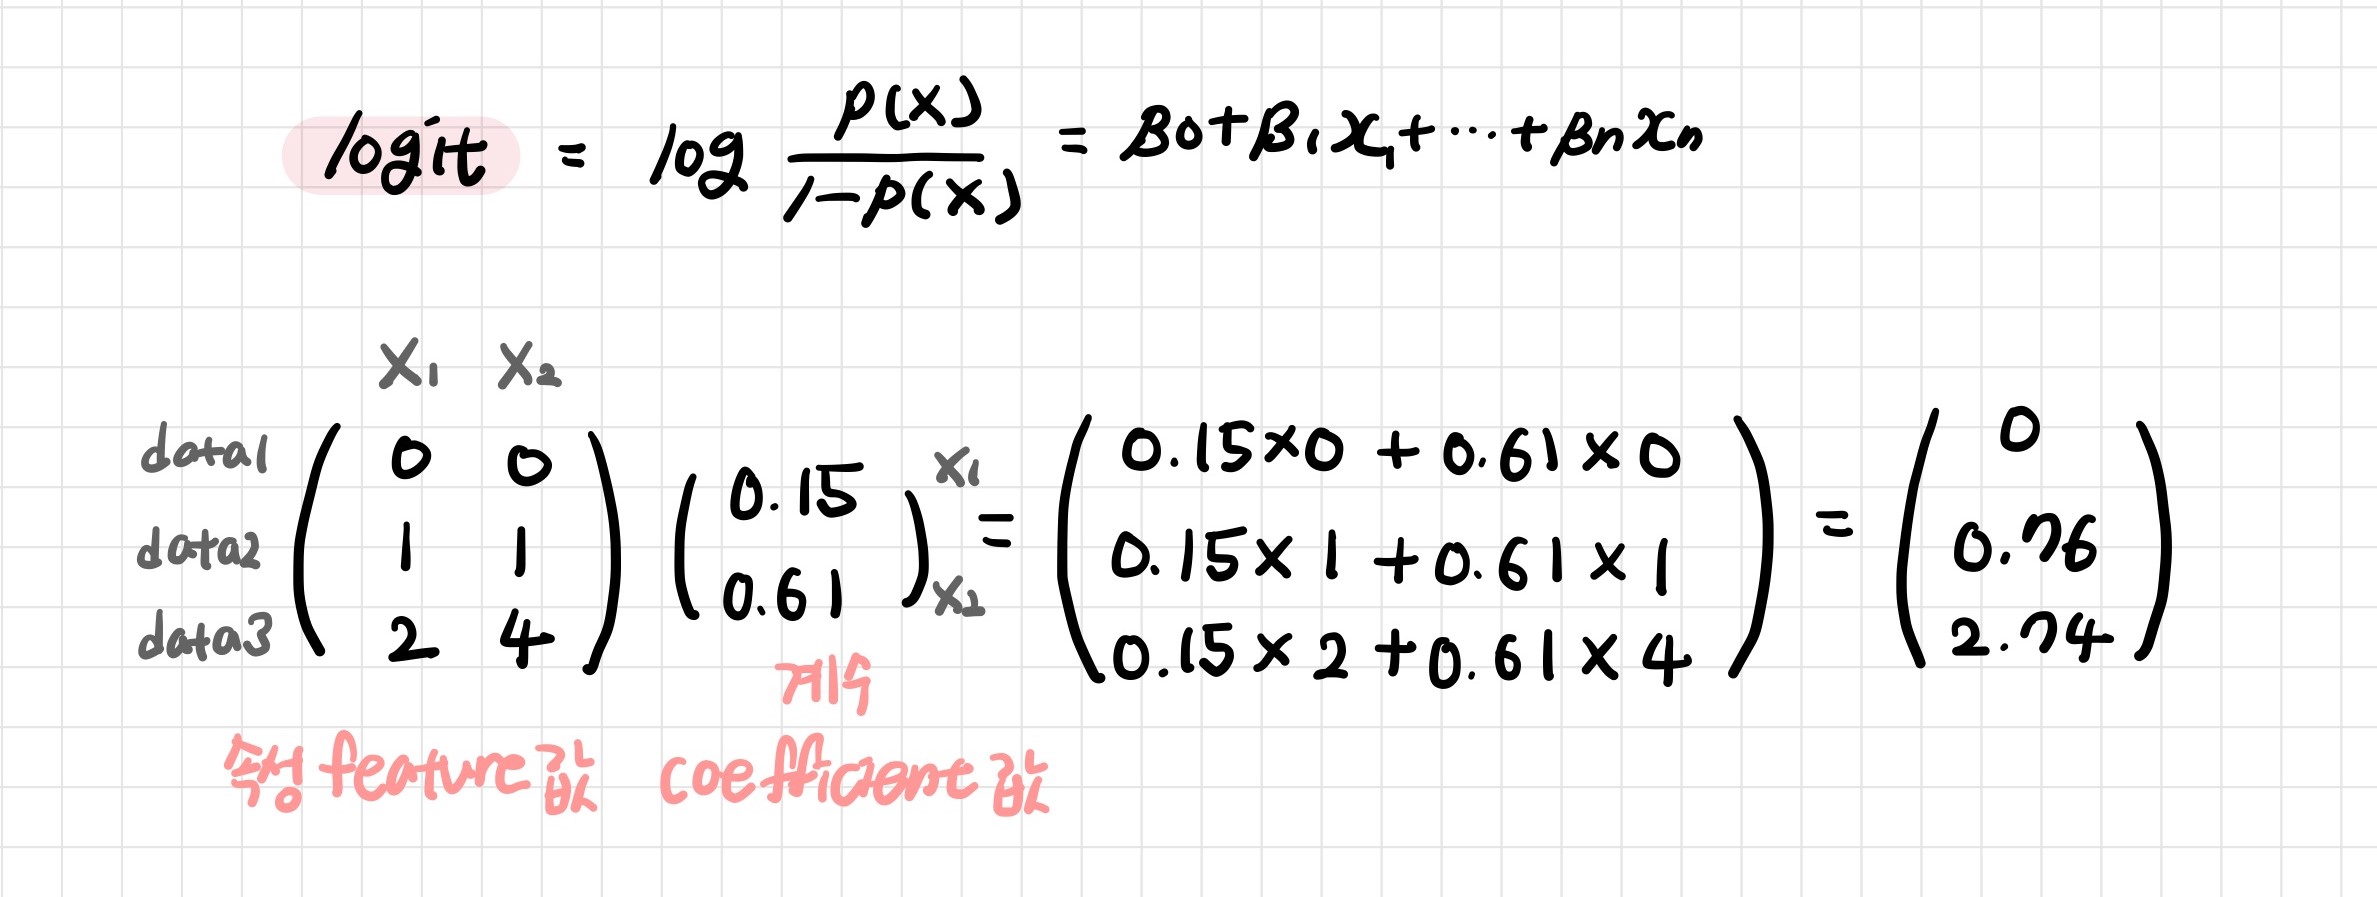 logit = log p(x) / 1-p(x) = β0+β1x1+…+βnxn
x1 x2
data1 0 0
data2 1 1
data3 2 4
0.15 x1
0.61 x2
=
0.15×0 + 0.61×0
0.15×1+0.61×1
0.15×2+0.61×4
=
0
0.76
2.74
계수
속성 feature 값 coefficient 값